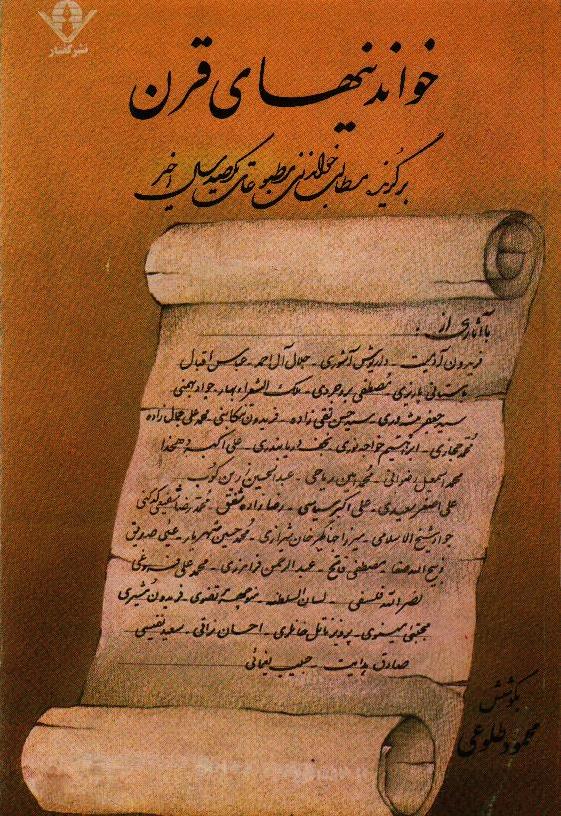 نشر گفتار
خواندنیهای قرن
برگزیده مطالب خواندنی مطبوعات یکصد سال اخیر
با آثاری از:
فریدون آدمیت - داریوش آشوری - جلال آل احمد - عباس اقبال
باستانی پاریزی - مصطفی بروجردی - ملک الشعراء بهار - جواد بهمنی
سید جعفر پیشه‌وری - سید حسن تقی زاده - فریدون تنکابنی - محمد علی جمال زاده
محمد حجازی - ابراهیم خواجه نوری - نجف دریابندری - علی اکبر دهخدا
محمد اسمعیل رضوانی - محمد امین ریاحی - عبدالحسین زرین کوب
علی اصغر سعیدی - علی اکبر سیاسی - رضازاده شفق - محمدرضا شفیعی کدکنی
جواد شیخ الاسلامی - میرزا جهانگیر خان شیرازی - محمد حسین شهریار - عیسی صدیق
ذبیح الله صفا - مصطفی فاتح - عبدالرحمن فرامرزی - محمد علی فروغی
نصرالله فلسفی - لسان السلطنه - منوچهر تقوی - فریدون مشیری
مجتبی مینوی - پرویز ناتل خانلری - احسان نراقی - سعید نفیسی
صادق هدایت - حبیب یغمائی
بکوشش
محمود طلوعی